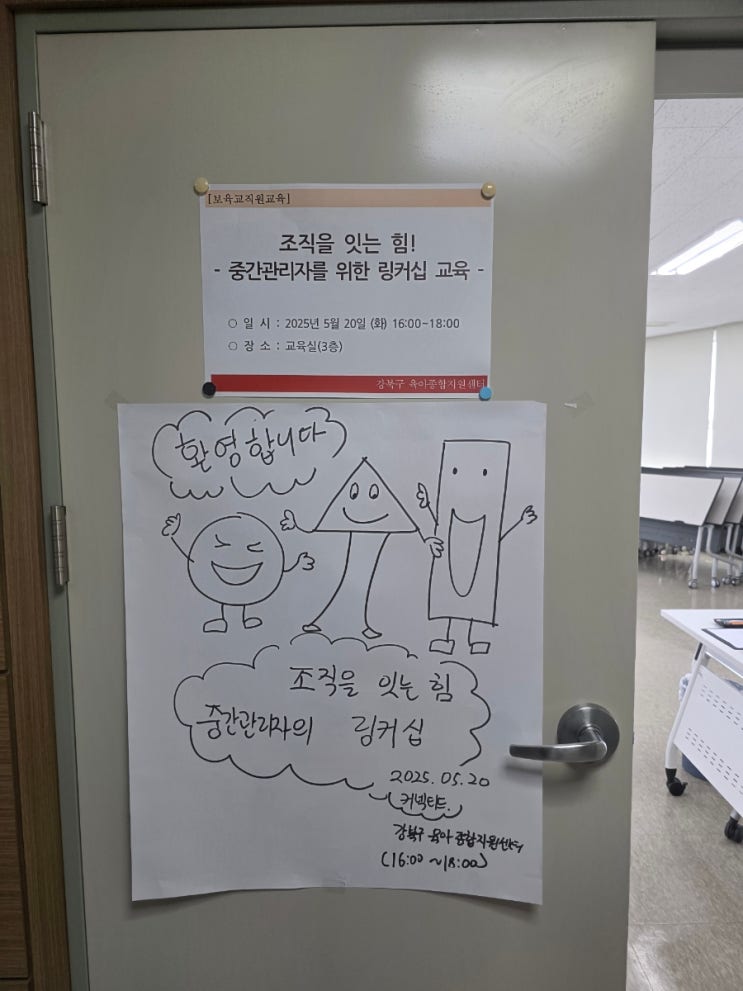 [보육교직원교육]
조직을 잇는 힘!
- 중간관리자를 위한 링커십 교육 -
○ 일 시 : 2025년 5월 20일 (화) 16:00~18:00
○ 장 소 : 교육실(3층)
강북구 육아종합지원센터
환영합니다
조직을 잇는 힘
중간관리자의 링커십
2025.05.20
커넥티드.
강북구 육아종합지원센터
(16:00 ~18:00)